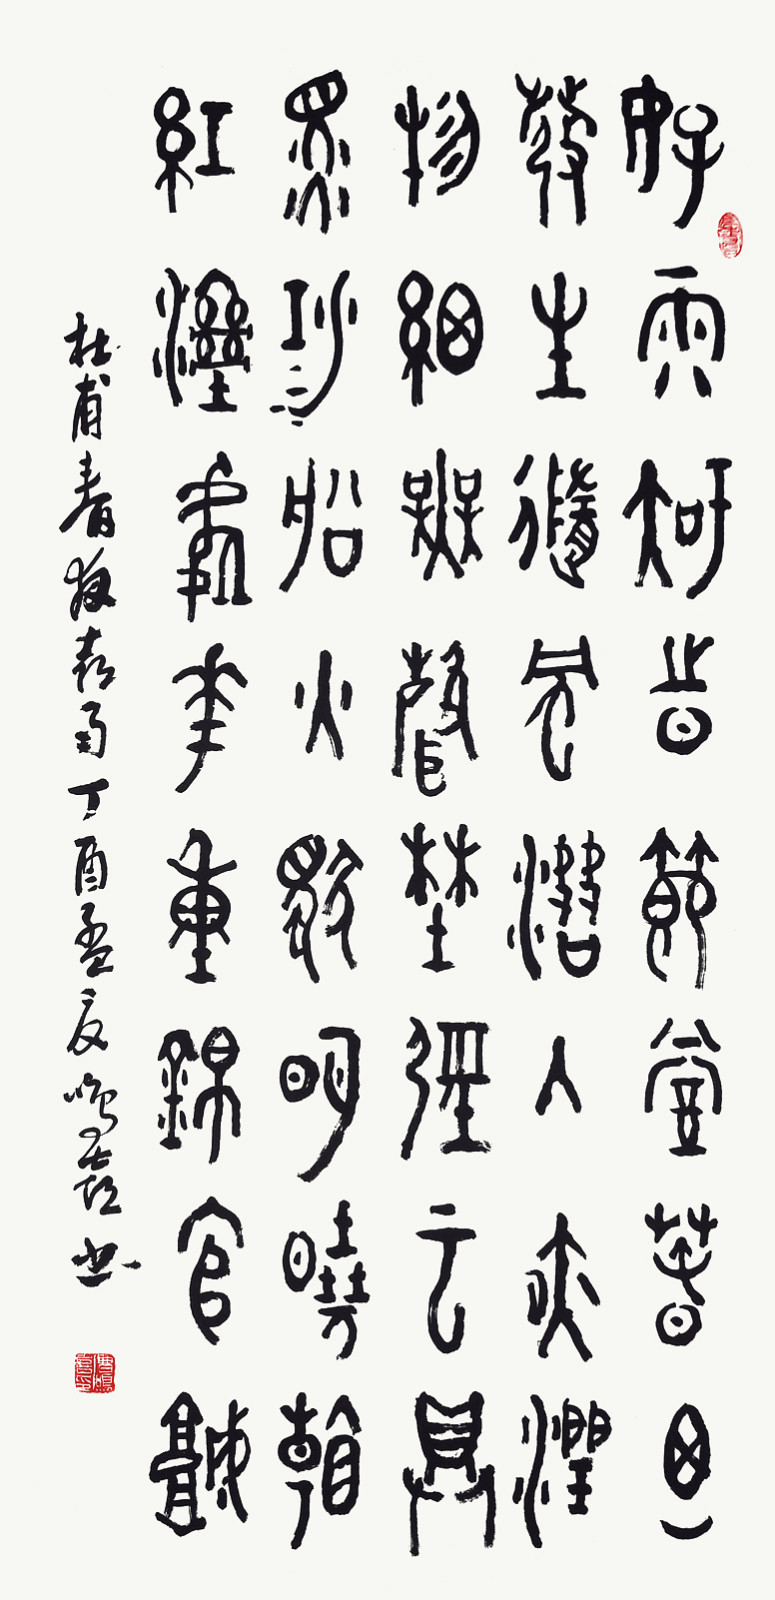 好雨知時節當春迺
發生隨風潛入夜潤
物細無聲埜徑云俱
黑江船火獨明曉看
紅濕處花重錦官城
杜甫春夜喜雨丁酉孟夏鸣喜书